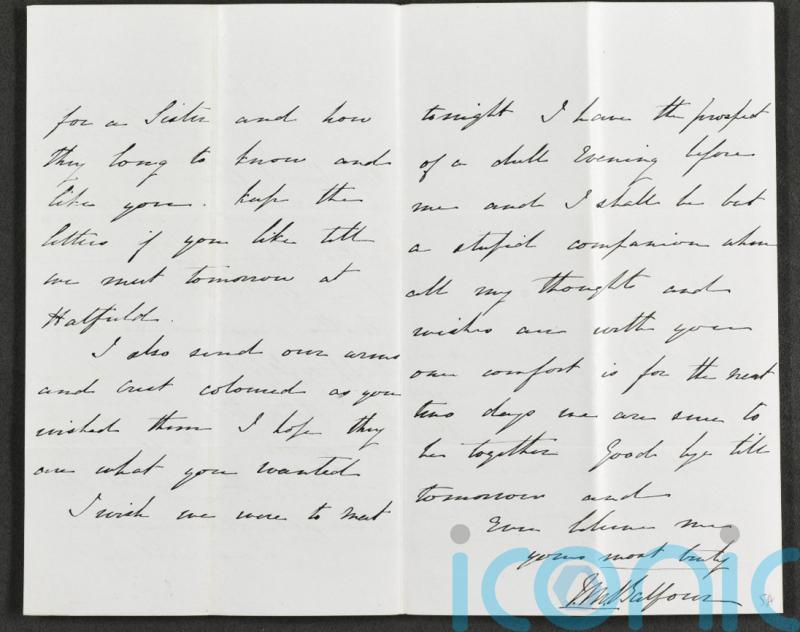 for a Sister and how
they long to know and
like you. Keep the
letters if you like till
we meet tomorrow at
Hatfield.
I also send our arms
and crest coloured as you
wished them I hope they
are what you wanted
I wish we were to meet
tonight I have the prospect
of a dull Evening before
me and I shall be but
a stupid companion when
all my thoughts and
wishes are with you
one comfort is for the next
two days we are sure to
be together Good bye till
tomorrow and
Ever believe me
yours most truly
J M Balfour
58
iconic